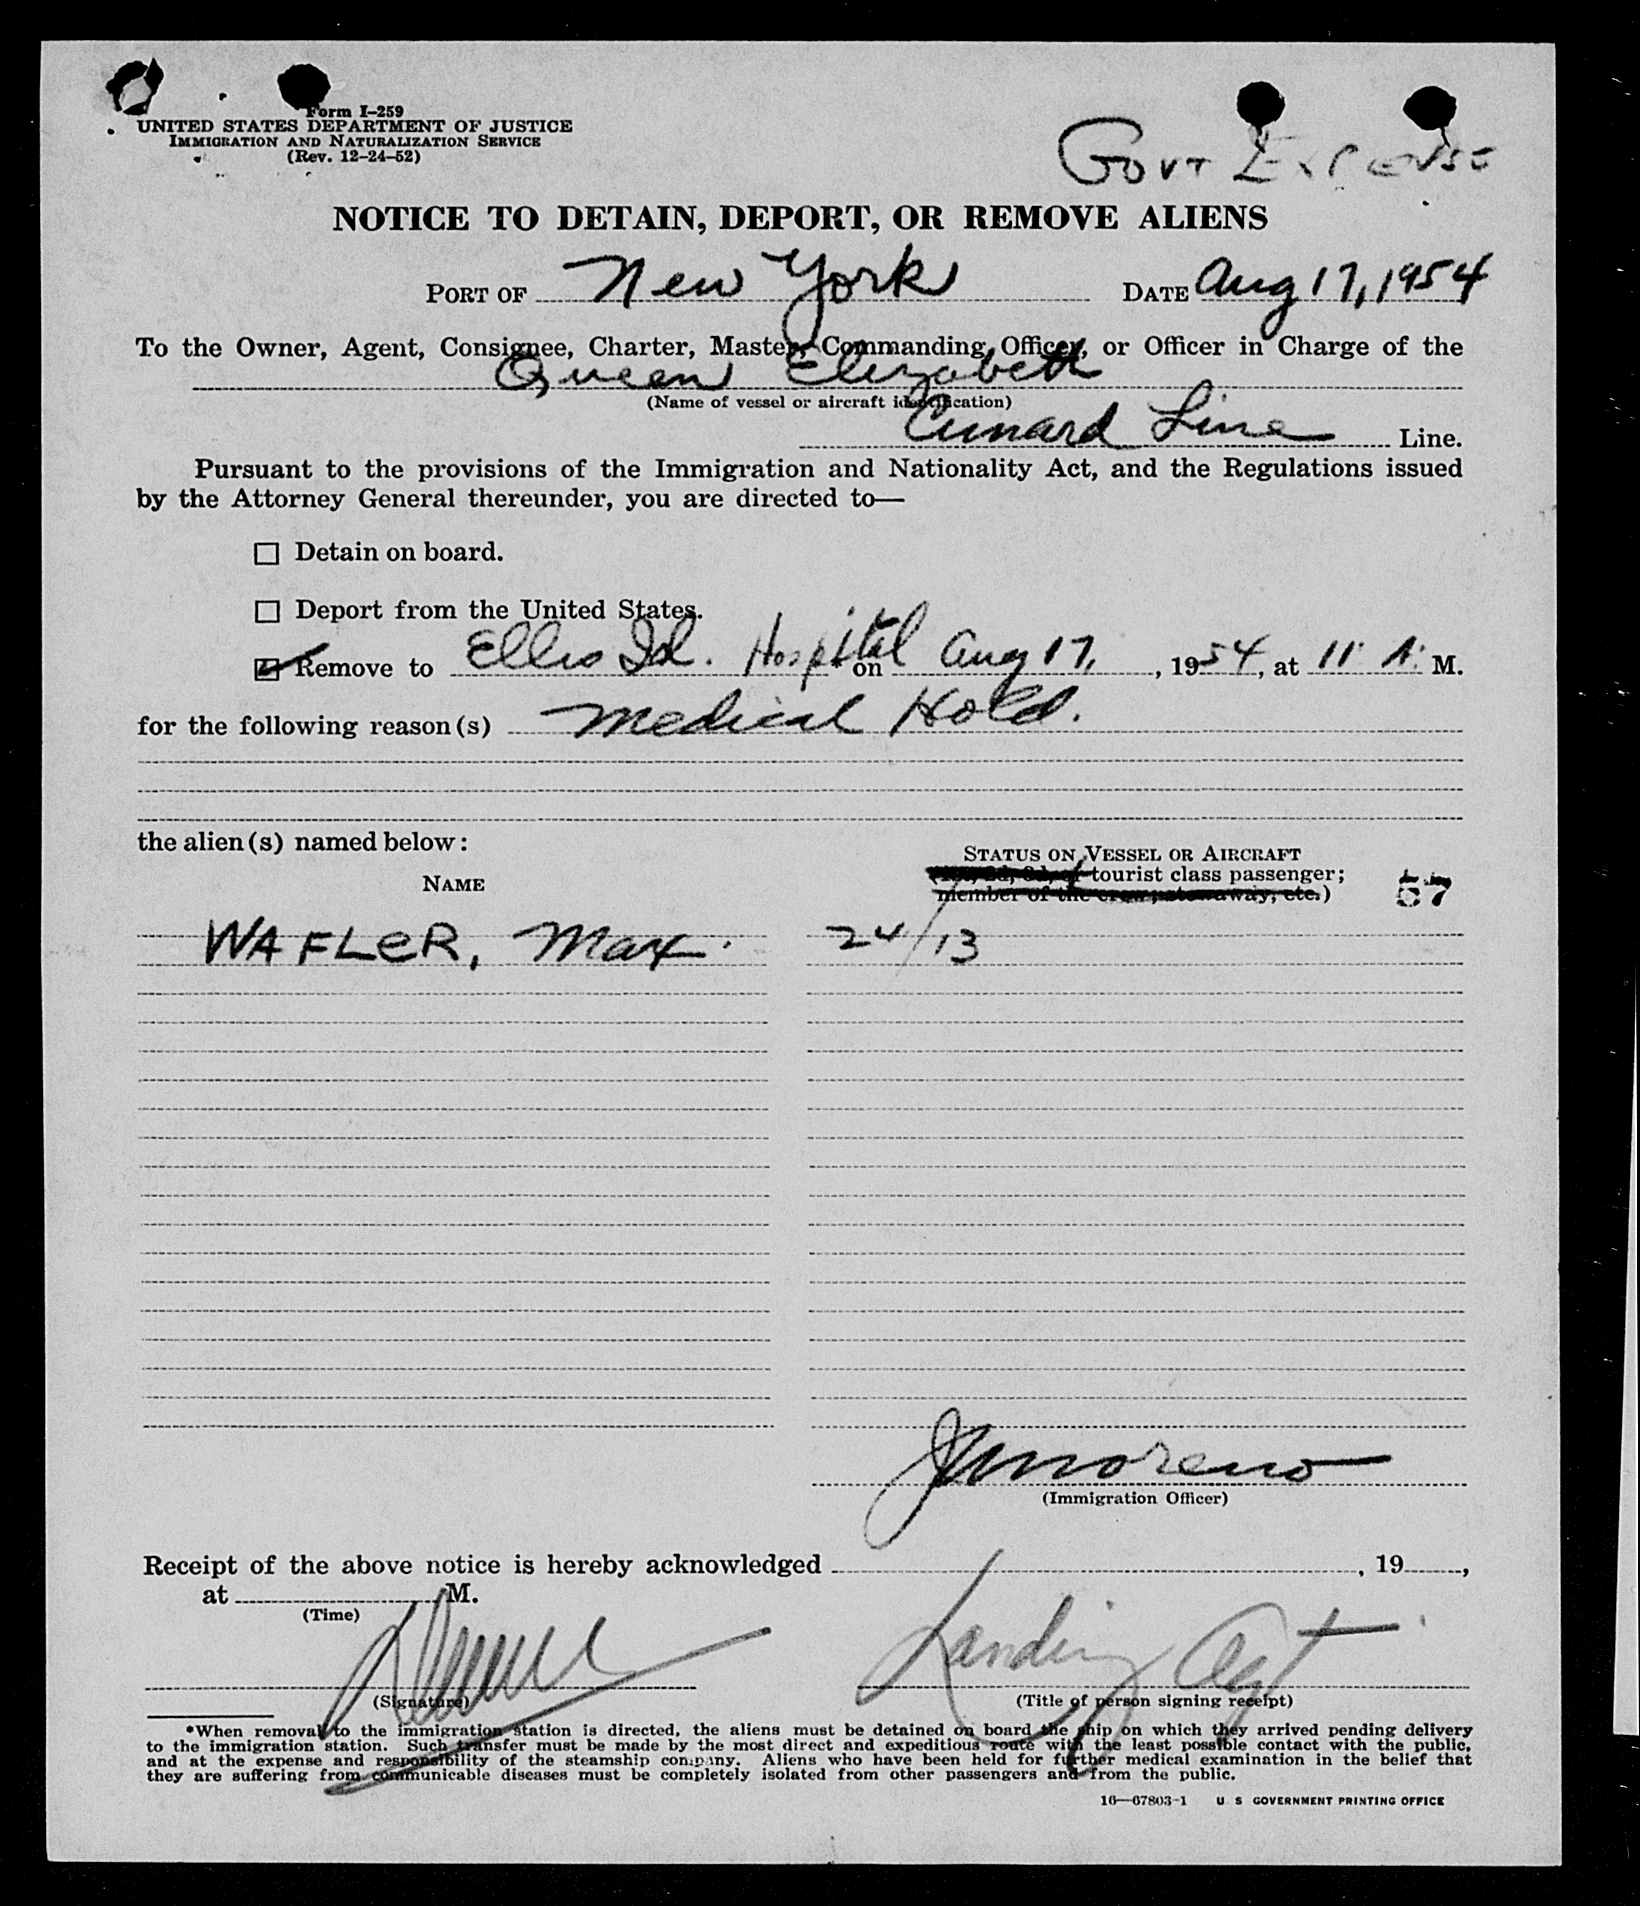 Form I-259
UNITED STATES DEPARTMENT OF JUSTICE
IMMIGRATION AND NATURALIZATION SERVICE
(Rev. 12-24-52)
GOVT EXPENSE
NOTICE TO DETAIN, DEPORT, OR REMOVE ALIENS
PORT OF New York DATE Aug 17, 1954
To the Owner, Agent, Consignee, Charter, Master, Commanding Officer, or Officer in Charge of the
Queen Elizabeth
(Name of vessel or aircraft identification)
Cunard Line Line.
Pursuant to the provisions of the Immigration and Nationality Act, and the Regulations issued
by the Attorney General thereunder, you are directed to—
Detain on board.
Deport from the United States.
Remove to Ellis Isl. Hospital on Aug 17, , 1954, at 11 A. M.
for the following reason(s) Medical Hold.
the alien(s) named below:
STATUS ON VESSEL OR AIRCRAFT
tourist class passenger;
NAME
member of the crew, stowaway, etc.) 57
WAFLER, Max. 24/13
JMoreno
(Immigration Officer)
Receipt of the above notice is hereby acknowledged , 19 ,
at M.
(Time)
Landing Agt
(Signature) (Title of person signing receipt)
*When removal to the immigration station is directed, the aliens must be detained on board the ship on which they arrived pending delivery
to the immigration station. Such transfer must be made by the most direct and expeditious route with the least possible contact with the public,
and at the expense and responsibility of the steamship company. Aliens who have been held for further medical examination in the belief that
they are suffering from communicable diseases must be completely isolated from other passengers and from the public.
16—67803-1 U S GOVERNMENT PRINTING OFFICE